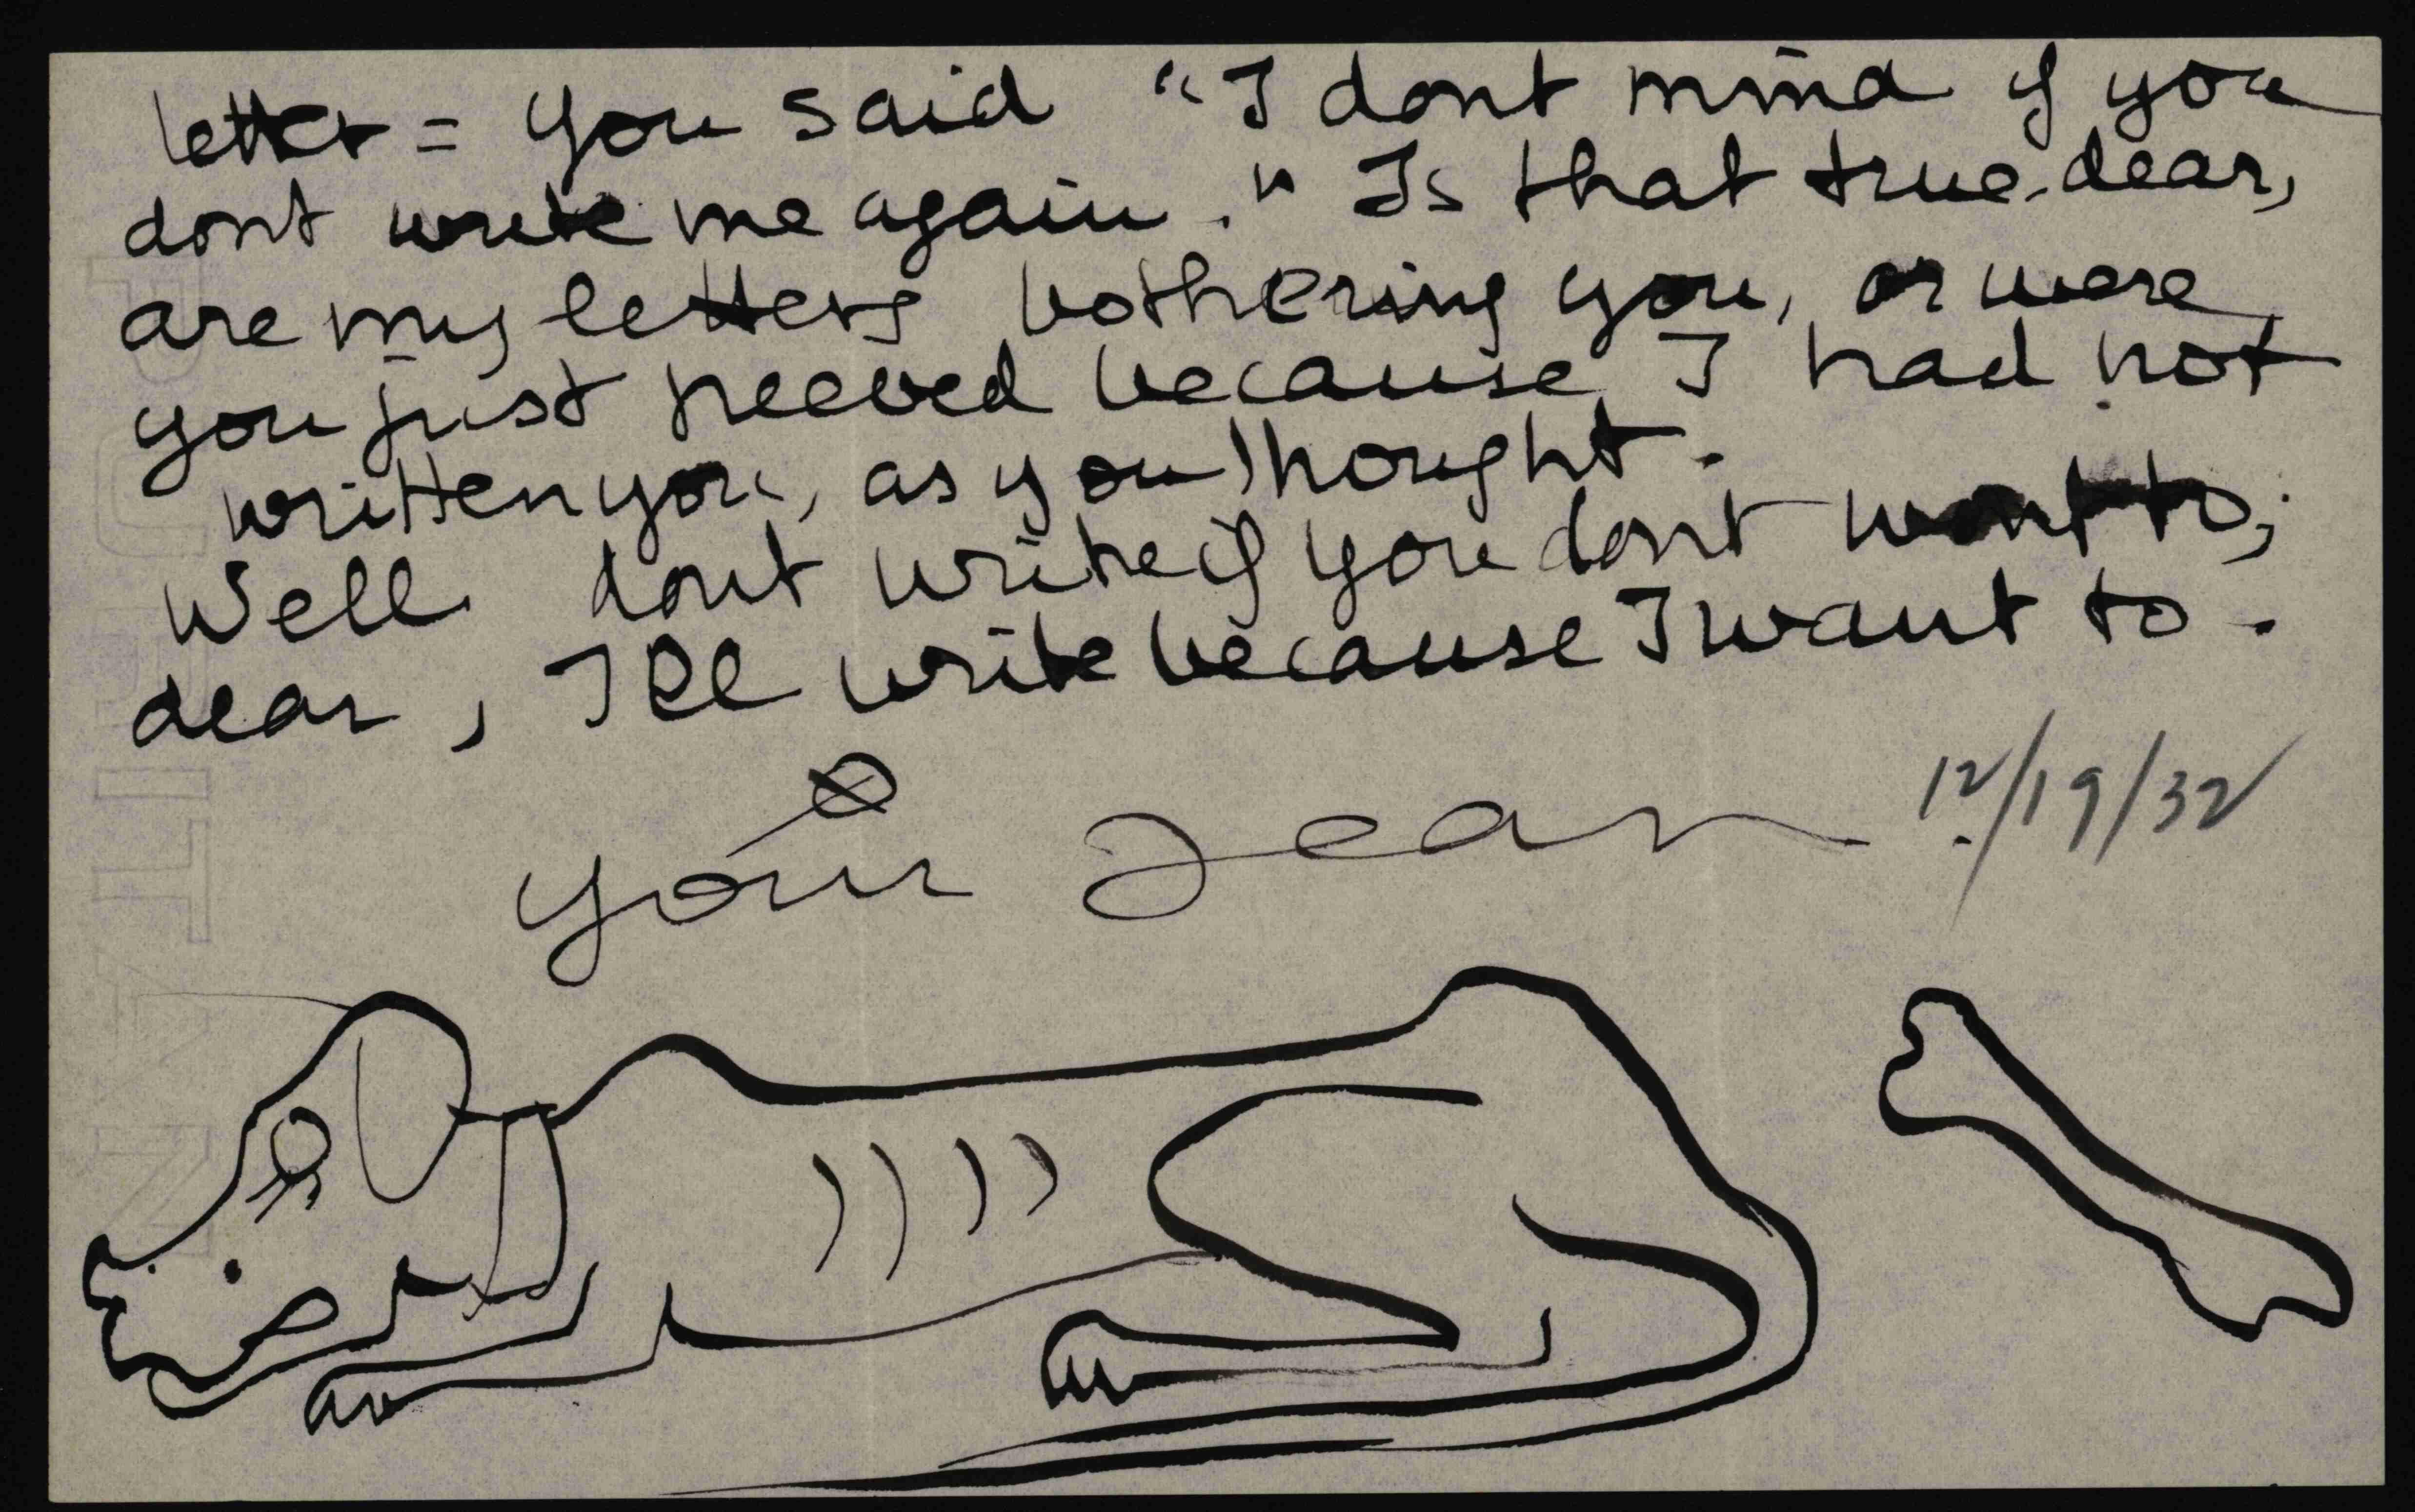 letter = You said "I dont mind if you
dont write me again." Is that true dear,
are my letters bothering you, or were
you just peeved because I had not
written you, as you thought.
Well dont write if you dont want to,
dear, I'll write because I want to.
your Jean 12/19/32